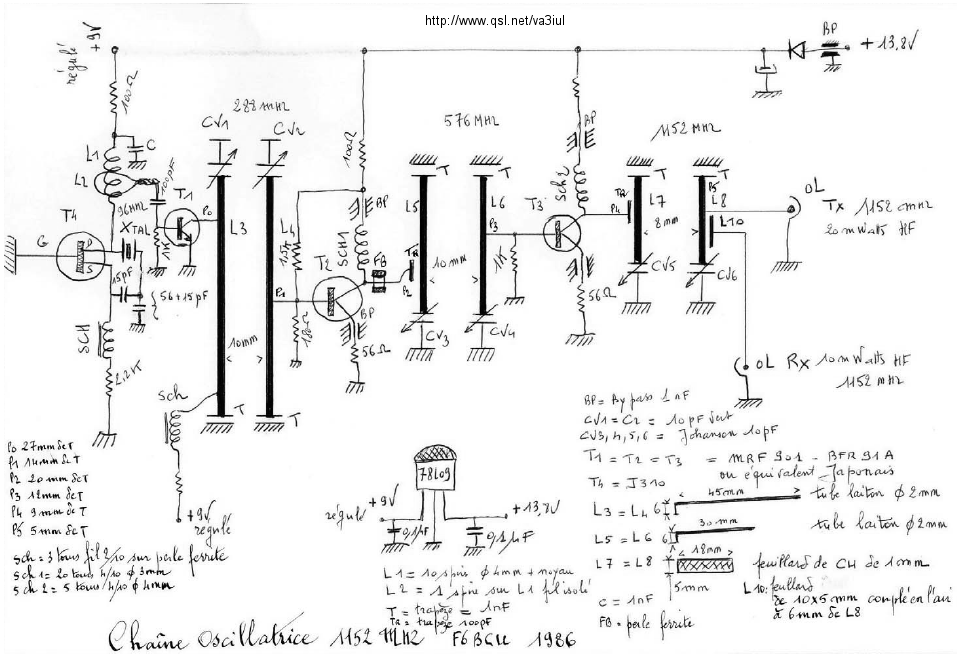 http://www.qsl.net/va3iul
+9V
régulé
BP
+13,8V
100Ω
288 MHZ
CV1
CV2
576 MHZ
1152 MHZ
BP
C
L1
L2
100pF
T1
P0
L3
96MHZ
XTAL
1K
T4
G
D
S
15pF
56+15pF
SCH
2,2K
10mm
T
T
sch
+9V
régulé
100Ω
L4
1,5K
P1
180Ω
T2
BP
SCH1
FB
TR
P2
BP
56Ω
T
T
L5
L6
10mm
CV3
CV4
P3
1K
T3
Sch2
56Ω
P4
TR
T
T
L7
P5
L8
L10
8mm
CV5
CV6
OL
Tx 1152 MHZ
20 mWatts HF
OL Rx 10 mWatts HF
1152 MHZ
P0 27mm de T
P1 14mm de T
P2 20mm de T
P3 12mm de T
P4 9mm de T
P5 5mm de T
Sch = 3 tours fil 2/10 sur perle ferrite
Sch 1 = 20 tours 4/10 φ 3mm
Sch 2 = 5 tours 4/10 φ 4mm
78L09
+9V
régulé
+13,8V
0,1µF
0,1µF
L1 = 10 spires φ 4mm + noyau
L2 = 1 spire sur L1 fil isolé
T = trapèze = 1nF
TR = trapèze 100pF
BP = By pass 1nF
CV1 = C2 = 10pF vert
CV3,4,5,6 = Johanson 10pF
T1 = T2 = T3 = MRF 901 - BFR 91A
ou équivalent Japonais
T4 = J310
L3 = L4 6 45mm tube laiton φ 2mm
L5 = L6 6 30mm tube laiton φ 2mm
L7 = L8 18mm feuillard de CH de 1mm
5mm
L10: feuillard
de 10x5mm couplé en l'air
à 6mm de L8
C = 1nF
FB = perle ferrite
Chaîne oscillatrice 1152 MHZ F6BGU 1986